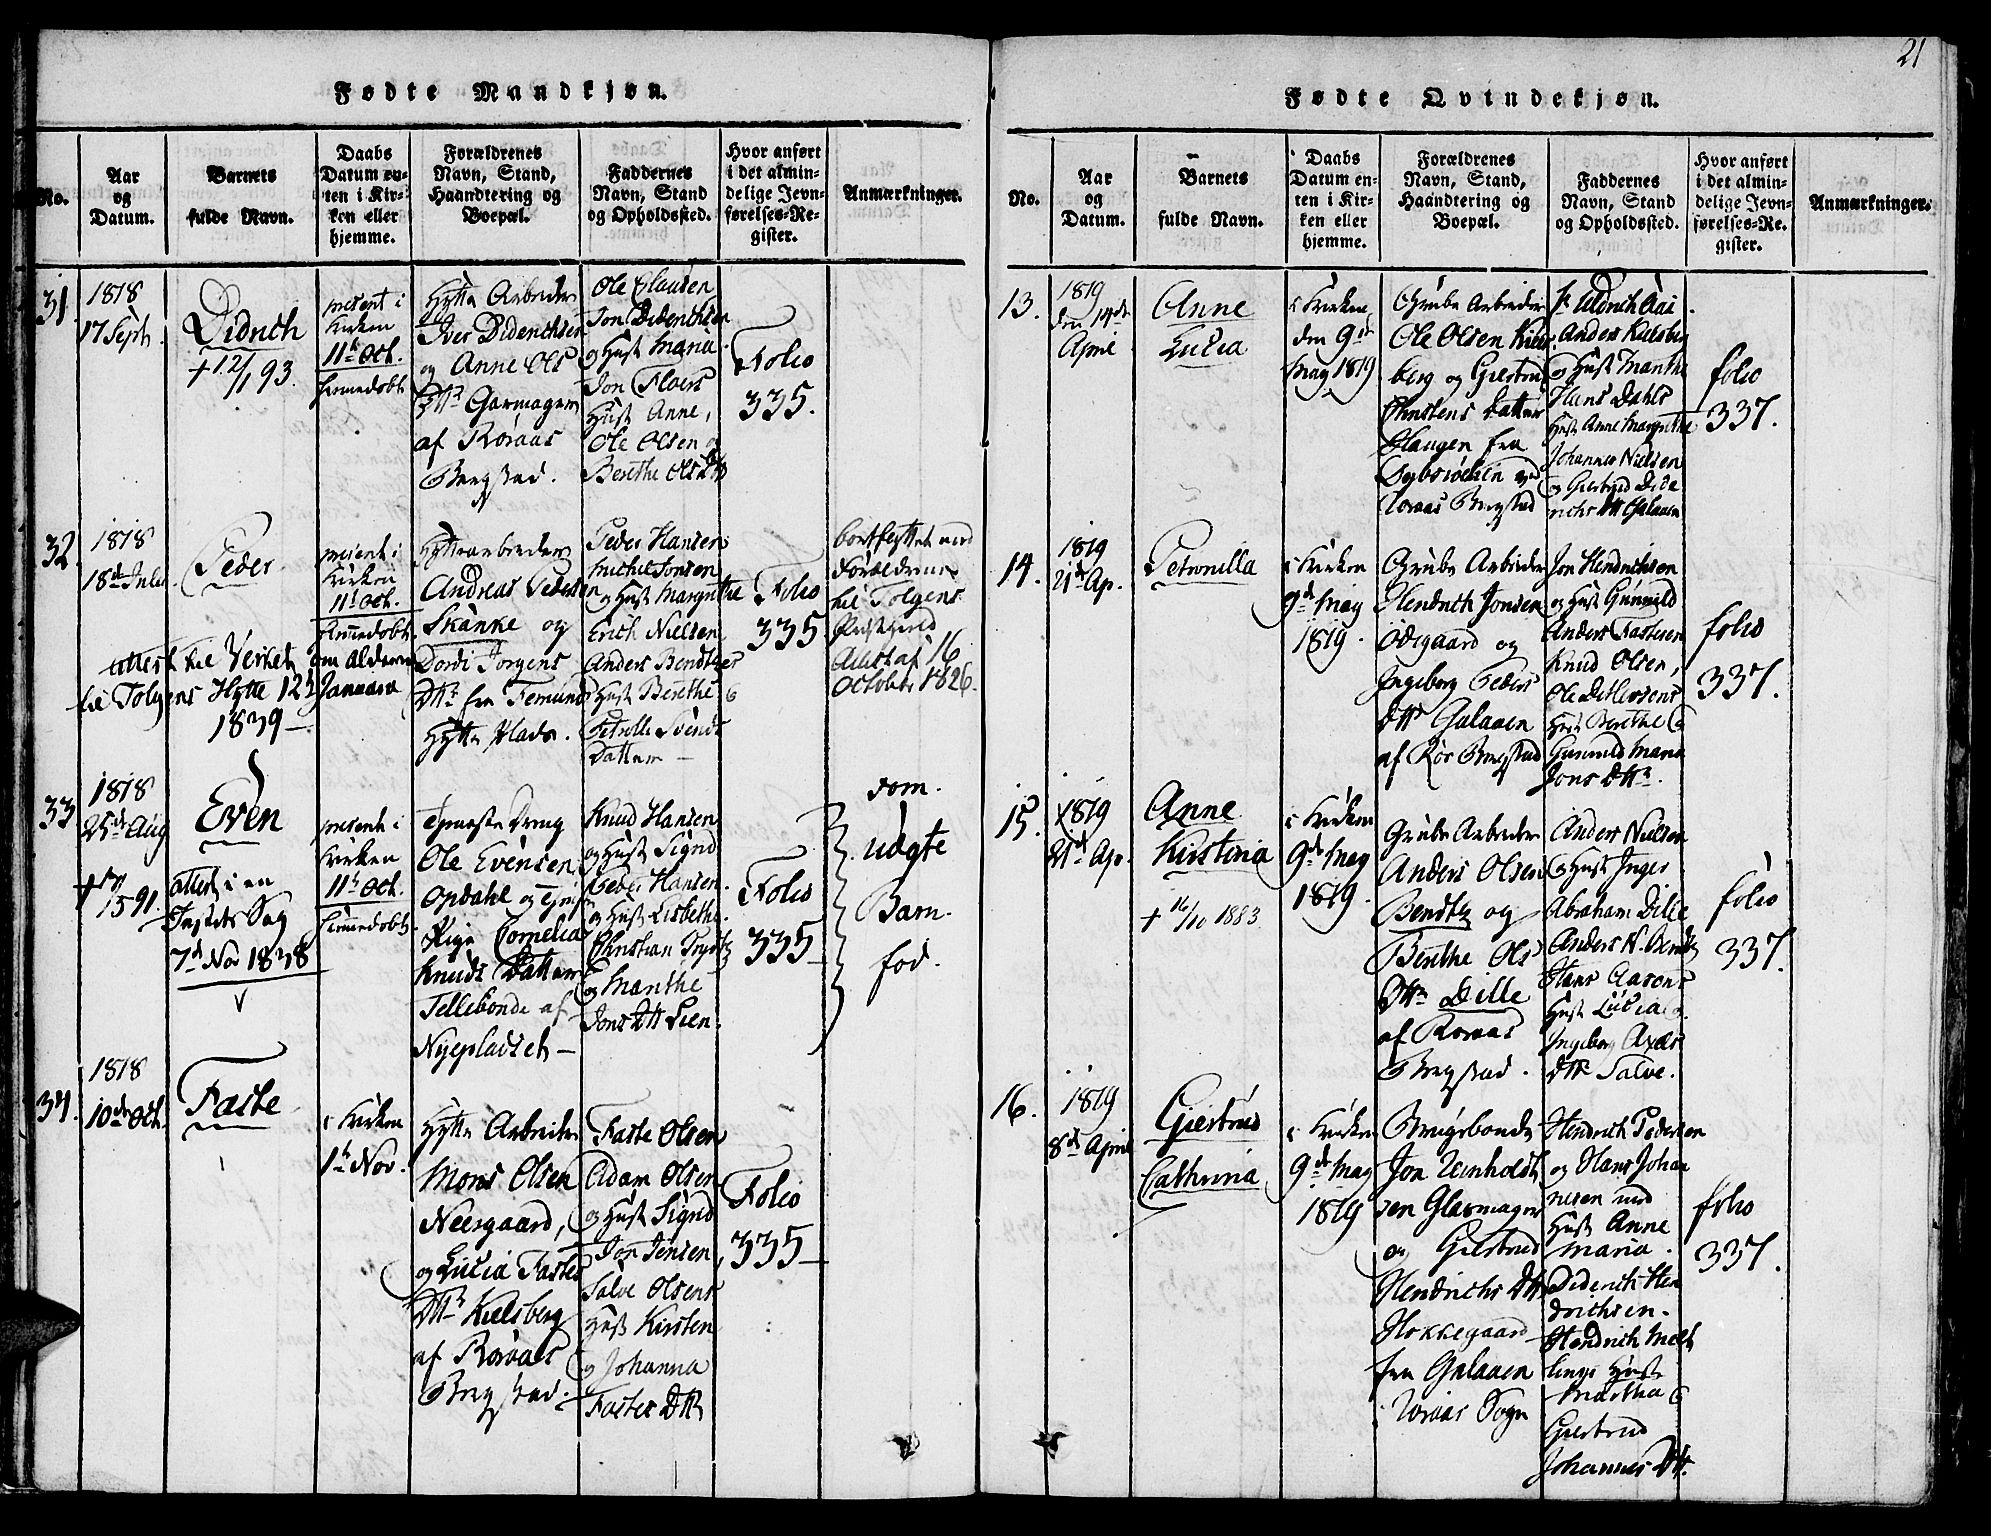 21
Fødte Mandkjøn.
No.
Aar
og
Datum.
Barnets
fulde Navn.
Daabs
Datum en-
ten i Kir-
ken eller
hjemme.
Forældrenes
Navn, Stand,
Haandtering og
Boepæl.
Faddernes
Navn, Stand
og Opholdssted.
Hvor anført
i det almin-
delige Jevn-
førelses-Re-
gister.
Anmærkninger.
31.
1818
17 Septr.
Didrich
+ 12/1 93.
præsent i
Kirken
11t Oct.
hiemedøbt
Hytte Arbeider
Iver Diderichsen
og Anne Ols
Dttr Garmager
af Røraas
Bergstad.
Ole Clausen
Jon Diderichsen
og Hust Maria
Jon Floers
Hust Anne,
Ole Olsen og
Berethe Olsdtr
Folio
335.
32.
1818
18de Julii
Peder
præsent i
Kirken
11t Oct.
hiemedøbt
Hyttearbeider
Andreas Pedersen
Skanke og
Dordi Jørgens
Dttr fra Femund
Hytte Plads.
Peder Hansen
Michel Jonsen
og Hust Margrethe
Erich Nielsen
Anders Bendtzes
Hust Berethe &
Petrolle Svends
Datter —
Folio
335
bortflyttet med
Forældrene
til Tolgens
Præstegield
Attest af 16
October 1826.
attest til Verket om Alderen
til Tolgens Hytte 12t Januari
1839 —
33
1818
25de Aug
Even
attest i en
Justits Sag
7d Nov 1838
præsent i
Kirken
11t Oct.
hiemmedøbt
Tienestedreng
Ole Evensen
Opdahl og Tieneste
Pige Cornelia
Knuds Datter
Tellebonde af
Nyepladset —
Knud Hansen
og Hust Sigrid
Peder Hansen
og Hust Lisbethe
Christian Trystz
og Marithe
Jons Dtt Lien.
Folio
335
som
udgte
Barn
fød.
34.
1818
10de Oct.
Faste
i Kirken
1t Nov.
Hytte Arbeider
Mons Olsen
Neergaard,
og Lucia Fastes
Dttr Kielsberg
af Røraas
Bergstad.
Faste Olsen
Adam Olsen
og Hust Sigrid
Jon Jensen,
Salve Olsens
Hust Kirsten
og Johanna
Fastes Dtt
Folio
335
Fødte Qvindekjøn.
No.
Aar
og
Datum.
Barnets
fulde Navn.
Daabs
Datum en-
ten i Kir-
ken eller
hjemme.
Forældrenes
Navn, Stand,
Haandtering og
Boepæl.
Faddernes
Navn, Stand
og Opholdssted.
Hvor anført
i det almin-
delige Jevn-
førelses-Re-
gister.
Anmærkninger.
13.
1819
den 14de
April
Anne
Lucia
i Kirken
den 9de
May 1819
Grube Arbeider
Ole Olsen Kiels
berg og Giertrud
Christens Datter
Haugen fra
ved
Røraas Bergstad
Anders Kielsberg
og Hust Marithe
Hans Dahls
Hust Anne Margrethe
Johannes Nielsen
og Giertrud Dide
richs Dtt Galaaen
folio
337.
14.
1819
21de Ap.
Petronilla
i Kirken
9de May
1819.
Grube Arbeider
Hendrich Jonsen
Ødegaard og
Ingeborg Peders
Dttr Galaaen
af Rør Bergstad
Jon Hendrichsen
og Hust Gunnild
Anders Fastesen
Knud Olsen,
Ole Ditlevsens
Hust Berethe &
Gunnild Maria
Jons Dttr.
folio
337.
15.
1819
21de Ap.
Anne
Kirstina
+ 16/10 1883
i Kirken
9de May
1819.
Grube Arbeider
Anders Olsen
Bendtz og
Berethe Ols
Dttr Dille
af Røraas
Bergstad.
Anders Nielsen
& Hust Inger
Abraham Dille
Anders N. Bendtz
Hans Aarons
Hust Lucia &
Ingeborg Axels
Dttr Salve.
folio
337.
16.
1819
8de April
Giertrud
Cathrina
i Kirken
9de May
1819
Brugsbonde
Jon Reinholdt
sen Glasmager
og Giertrud
Hendrichs Dtt
Hokkegaard
fra Galaaen
Røraas Sogn
Hendrich Pedersen
og Hans Johan
nesen med
Hust Anne
Maria.
Diderich Hen
drichsen.
Hendrich Mel
lings Hust
Martha &
Giertrud
Johannes Dtt.
folio
337.